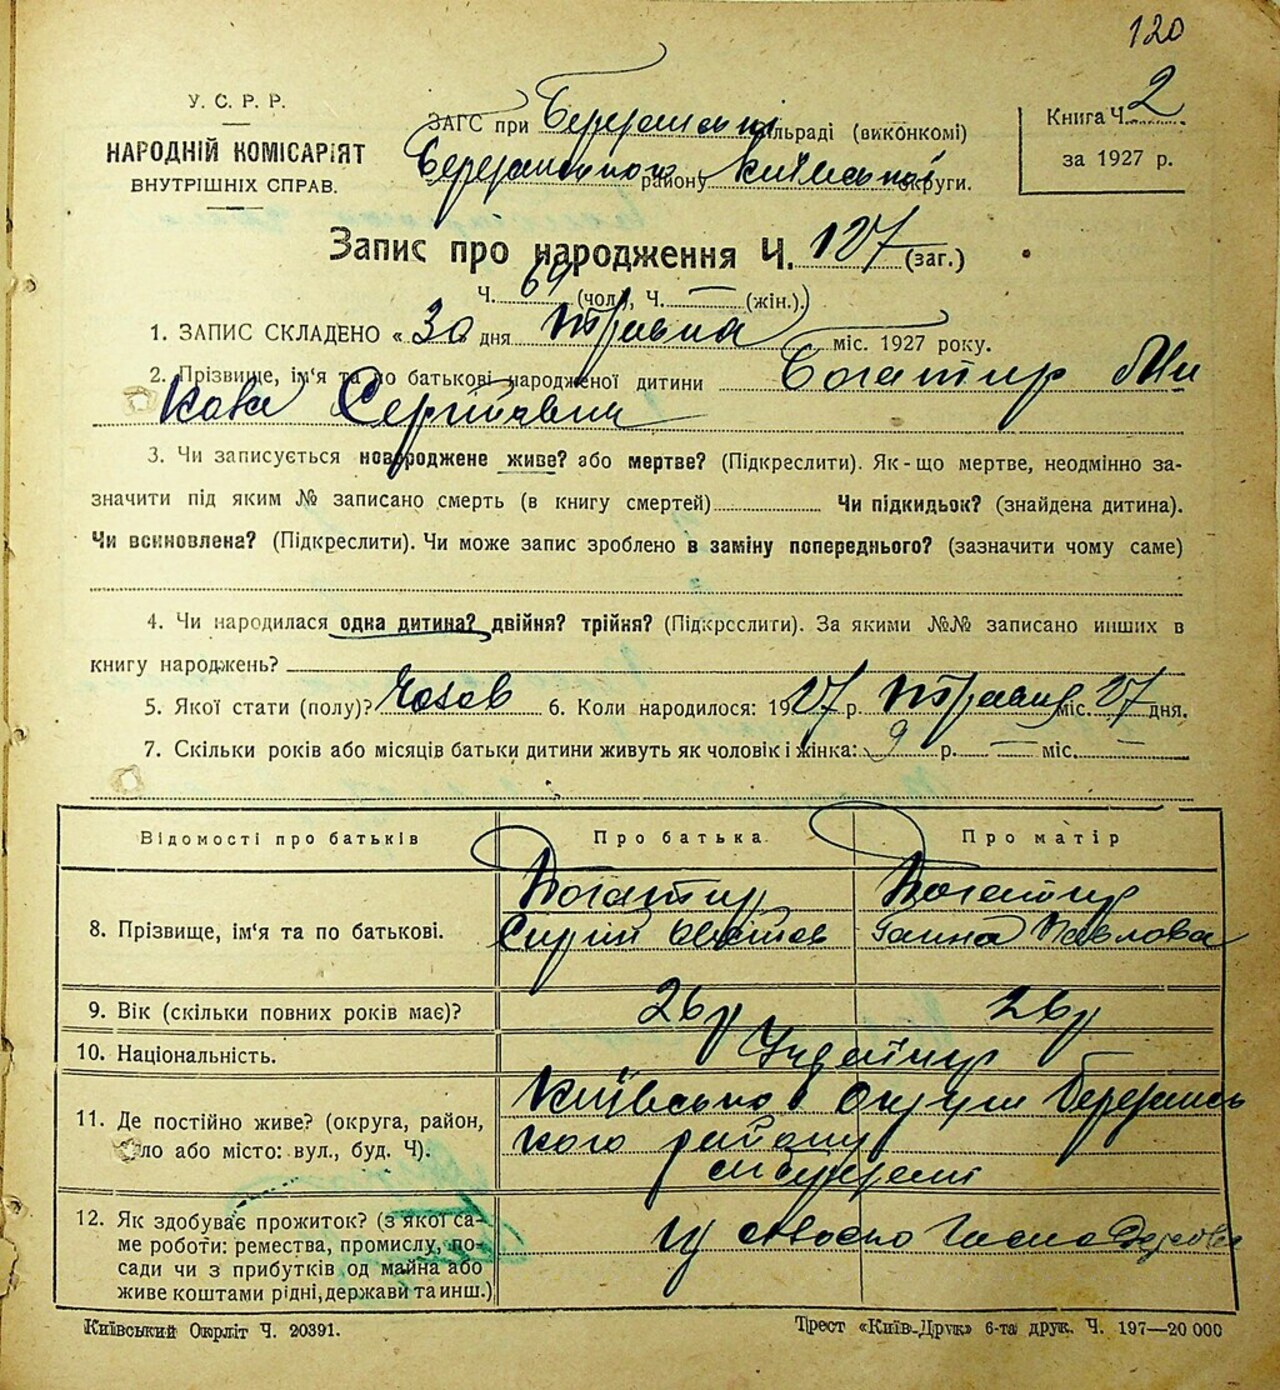 120
У. С. Р. Р.
НАРОДНІЙ КОМІСАРІЯТ
ВНУТРІШНІХ СПРАВ.
ЗАГС при сільраді (виконкомі)
району Київської округи.
Книга Ч. 2
за 1927 р.
Запис про народження Ч. 127 (заг.)
Ч. 69 (чол.), Ч. — (жін.).
1. ЗАПИС СКЛАДЕНО « 30 дня Травня міс. 1927 року.
2. Прізвище, ім'я та по батькові народженої дитини Богатир Ми
кола Сергійович
3. Чи записується новороджене живе? або мертве? (Підкреслити). Як-що мертве, неодмінно за-
значити під яким № записано смерть (в книгу смертей) Чи підкидьок? (знайдена дитина).
Чи всиновлена? (Підкреслити). Чи може запис зроблено в заміну попереднього? (зазначити чому саме)
4. Чи народилася одна дитина? двійня? трійня? (Підкреслити). За якими №№ записано инших в
книгу народжень?
5. Якої стати (полу)? 6. Коли народилося: 1927 р. Травня міс. 27 дня.
7. Скільки років або місяців батьки дитини живуть як чоловік і жінка: 9 р. — міс. —
Відомості про батьків Про батька. Про матір
8. Прізвище, ім'я та по батькові. Богатир Богатир
Сергій Ганна Павлова
9. Вік (скільки повних років має)? 26 р 26 р
10. Національність. Українці
11. Де постійно живе? (округа, район, село або місто: вул., буд. Ч). Київської Округи
кого району
12. Як здобуває прожиток? (з якої са-
ме роботи: ремества, промислу, по-
сади чи з прибутків од майна або
живе коштами рідні, держави та инш.)
Київський Окрліт Ч. 20391.
Трест «Київ-Друк» 6-та друк. Ч. 197—20 000